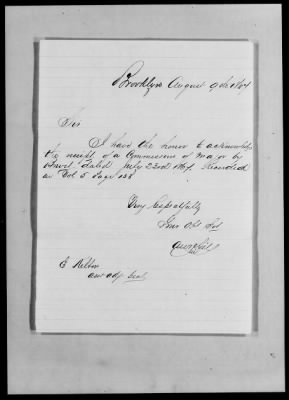 Brooklyn August 9th 1864
Sir
I have the honor to acknowledge
the receipt of a Commission of Major by
Brevet dated July 22nd Recorded
on Vol 5 Page 138
Very Respectfully
Your Obt Svt
E
Asst Adj Genl